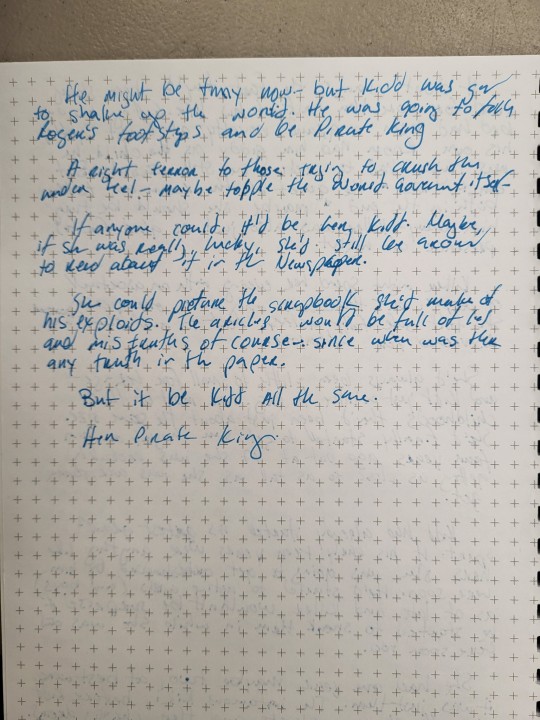 He might be tiny now - but Kidd was gon
to shake up the world. He was going to follow
Roger's footsteps and be Pirate King
A right terror to those trying to crush them
under heel - maybe topple the World Goverment itself-
If anyone could, it'd be her Kidd. Maybe,
if she was really lucky, she'd still be around
to read about it in the Newspaper.
She could picture the scrapbook she'd make of
his exploits. The articles would be full of lies
and mistruths of course - since when was there
any truth in the paper.
But it be Kidd All the same.
Her Pirate King.